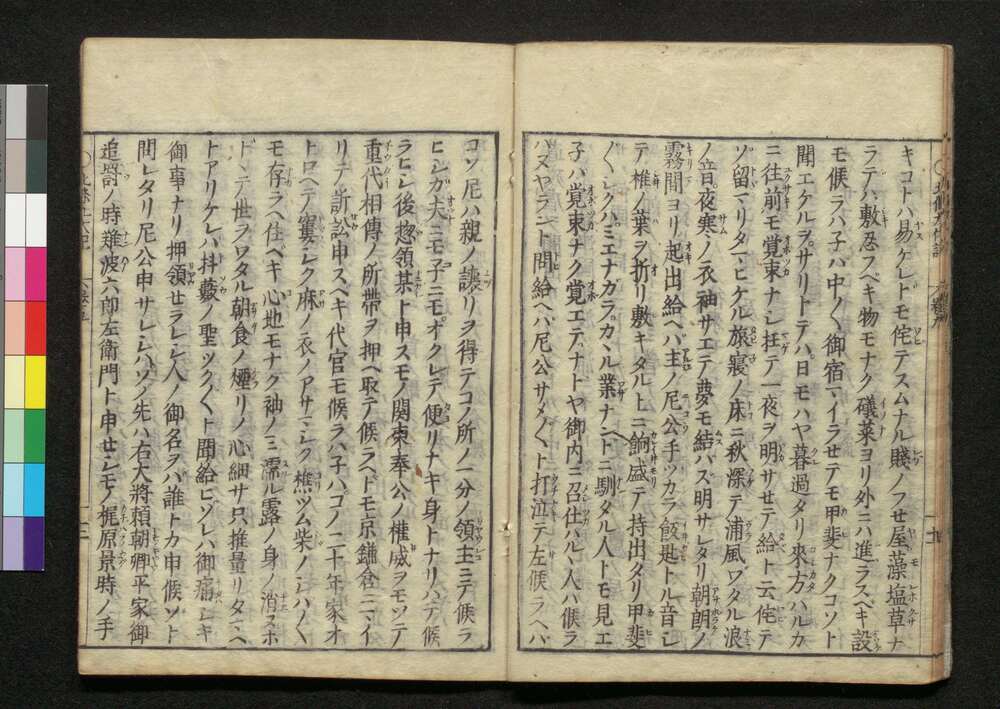 キコトハ易ケレトモ侘テスムナル賤ノフせ屋藻塩草ナ
ラテハ敷忍フベキ物モナク礒菜ヨリ外ニハ進ラスベキ設
モ候ラハ子ハ中〱御宿ヽイラせテモ甲斐ナクコソト
聞エケルヲサリトテハ日モハヤ暮過タリ來方ハルカ
ニ往前モ覚束ナシ抂テ一夜ヲ明サせテ給ト云侘テ
ソ留マリタマヒケル旅寢ノ床ニ秋深テ浦風ワタル浪
ノ音夜寒ノ衣袖サエテ夢モ結バズ明サレタリ朝朗ノ
霧間ヨリ起出給ヘハ主ノ尼公手ツカラ飯匙トル音シ
テ椎ノ葉ヲ折リ敷キタル上ニ餉盛テ持出タリ甲斐
〱シクハミエナガラカヽル業ナントニ馴タル人トモ見エ
子ハ覚束ナク覚エテナトヤ御内ニ召仕ハルヽ人ハ候ラ
ハヌヤラント問給ヘバ尼公サメ〲ト打泣テ左候ラヘバ
コソ尼ハ親ノ讓リヲ得テコノ所ノ一分ノ領主ニテ候ラ
ヒシガ夫ニモ子ニモオクレテ便リナキ身トナリハテ候
ラヒシ後惣領某ト申スモノ関東奉公ノ權威ヲモツテ
重代相傳ノ所帯ヲ押ヘ取テ候ラヘドモ京鎌倉ニマイ
リテ訴訟申スヘキ代官モ候ラハ子ハコノ二十年家オ
トロヘテ窶シク麻ノ衣ノアサマシク樵ツム柴ノシハ〱
モ存ラヘ住ベキ心地モナク袖ノミ濡ル露ノ身ノ消ヌホ
ドヽテ世ラワタル朝食ノ煙リノ心細サ只推量リタマヘ
トアリケレハ抖藪ノ聖ツク〲ト聞給ヒソレハ御痛シキ
御事ナリ押領せラレシ人ノ御名ヲバ誰トカ申候ゾト
問レタリ尼公申サレシハソノ先ハ右大將賴朝卿平家御
追討ノ時難波六郎左衛門ト申せシモノ梶原景時ノ手